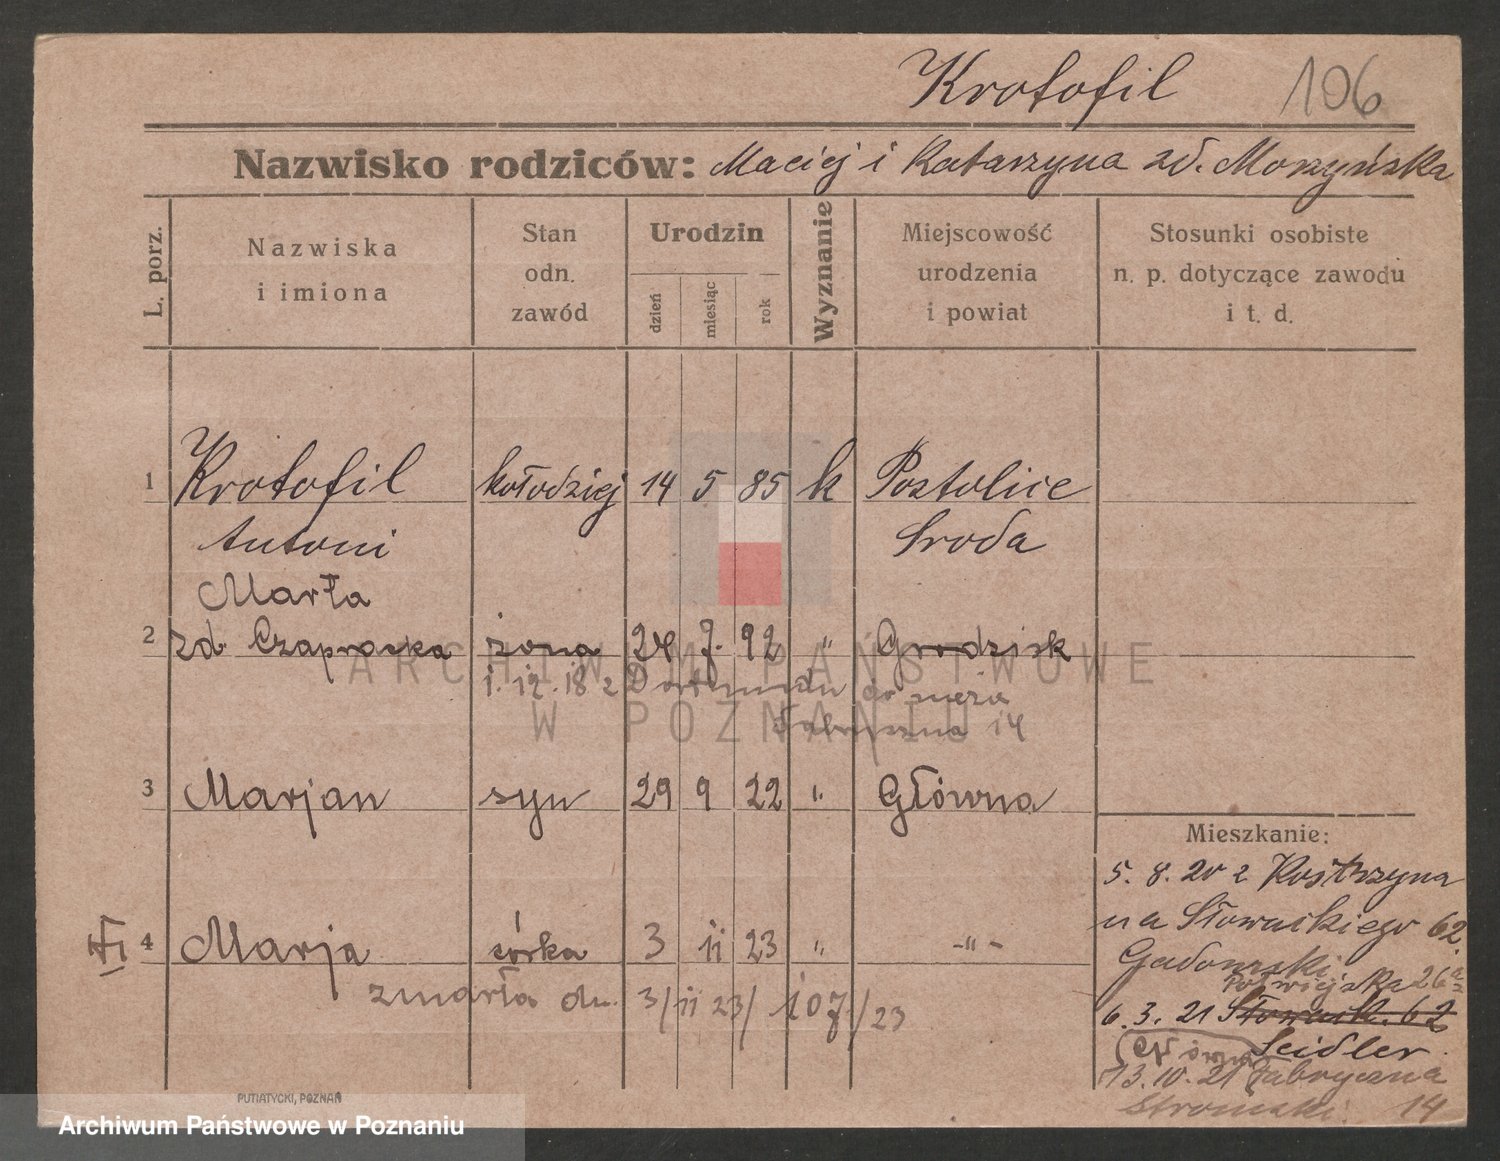 Krotofil 106
Nazwisko rodziców: Maciej i Katarzyna zd. Moszyńska
L. porz.
Nazwiska
i imiona
Stan
odn.
zawód
Urodzin
dzień
miesiąc
rok
Wyznanie
Miejscowość
urodzenia
i powiat
Stosunki osobiste
n. p. dotyczące zawodu
i t. d.
1 Krotofil kołodziej 14 5 85 k Postolice
Antoni Sroda
Marta
2 zd. Czapracka żona 24 7. 92 " Grodzisk
1. 12. 18 z Dortmundu do męża
Fabryczna 14
3 Marjan syn 29 9 22 " Główna
Mieszkanie:
5. 8. 20 z Kostrzyna
na Słowackiego 62.
Gadomski
4 Marja córka 3 11 23 " -"-
zmarła dn. 3/11 23/ 107/23
Półwiejska 26a
6. 3. 21 Słowack. 62
Seidler.
Główna
13. 10. 21 Fabryczna
14
PUTIATYCKI, POZNAŃ
ARCHIWUM PAŃSTWOWE
W POZNANIU
Archiwum Państwowe w Poznaniu